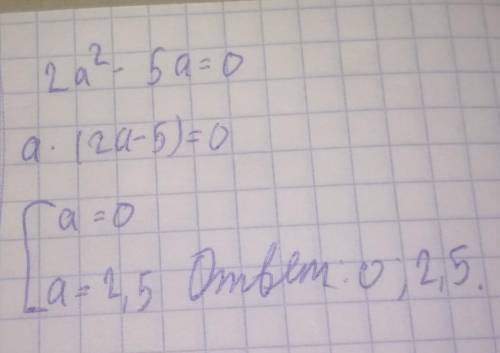 2a² - 5a = 0
a · (2a - 5) = 0
a = 0
a = 2,5 Ответ: 0; 2,5.